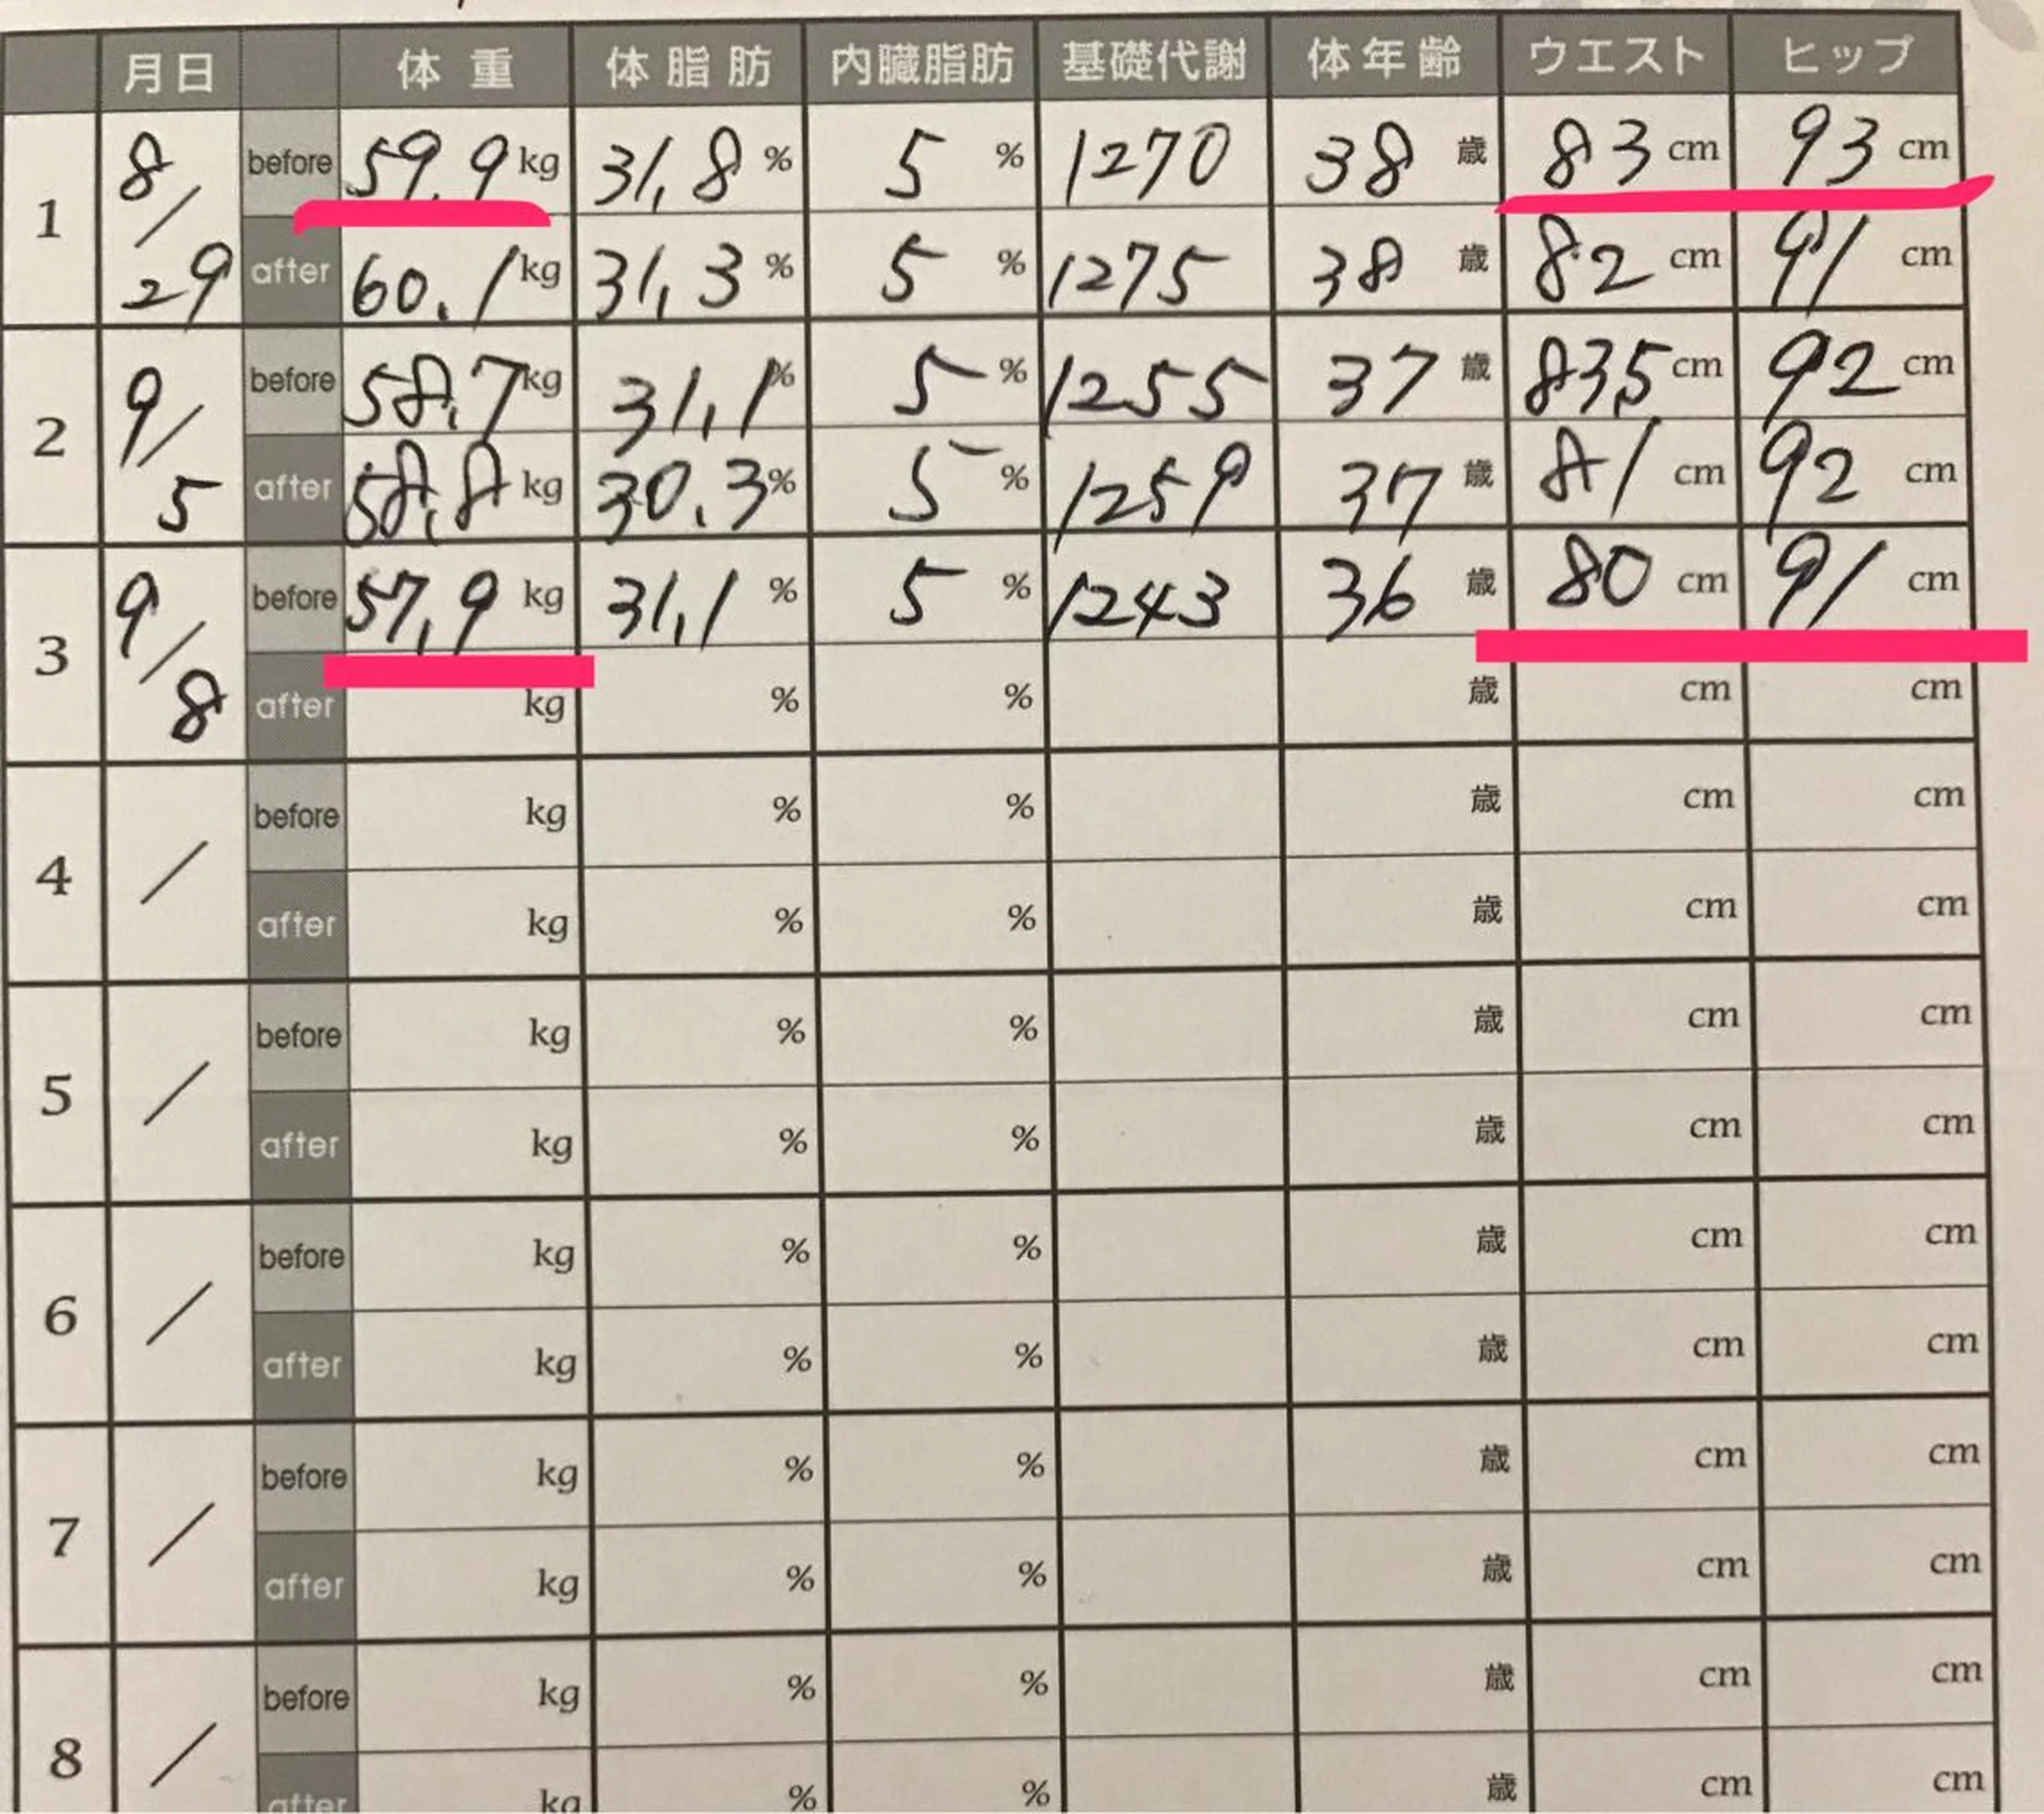 月日 体重 体脂肪 内臓脂肪 基礎代謝 体年齢 ウエスト ヒップ
1 8/29 before 59.9kg 31.8% 5% 1270 38歳 83cm 93cm
after 60.1kg 31.3% 5% 1275 38歳 82cm 91cm
2 9/5 before 58.7kg 31.1% 5% 1255 37歳 83.5cm 92cm
after 58.8kg 30.3% 5% 1259 37歳 81cm 92cm
3 9/8 before 57.9kg 31.1% 5% 1243 36歳 80cm 91cm
after kg % % 歳 cm cm
4 / before kg % % 歳 cm cm
after kg % % 歳 cm cm
5 / before kg % % 歳 cm cm
after kg % % 歳 cm cm
6 / before kg % % 歳 cm cm
after kg % % 歳 cm cm
7 / before kg % % 歳 cm cm
after kg % % 歳 cm cm
8 / before kg % % 歳 cm cm
after kg % % 歳 cm cm